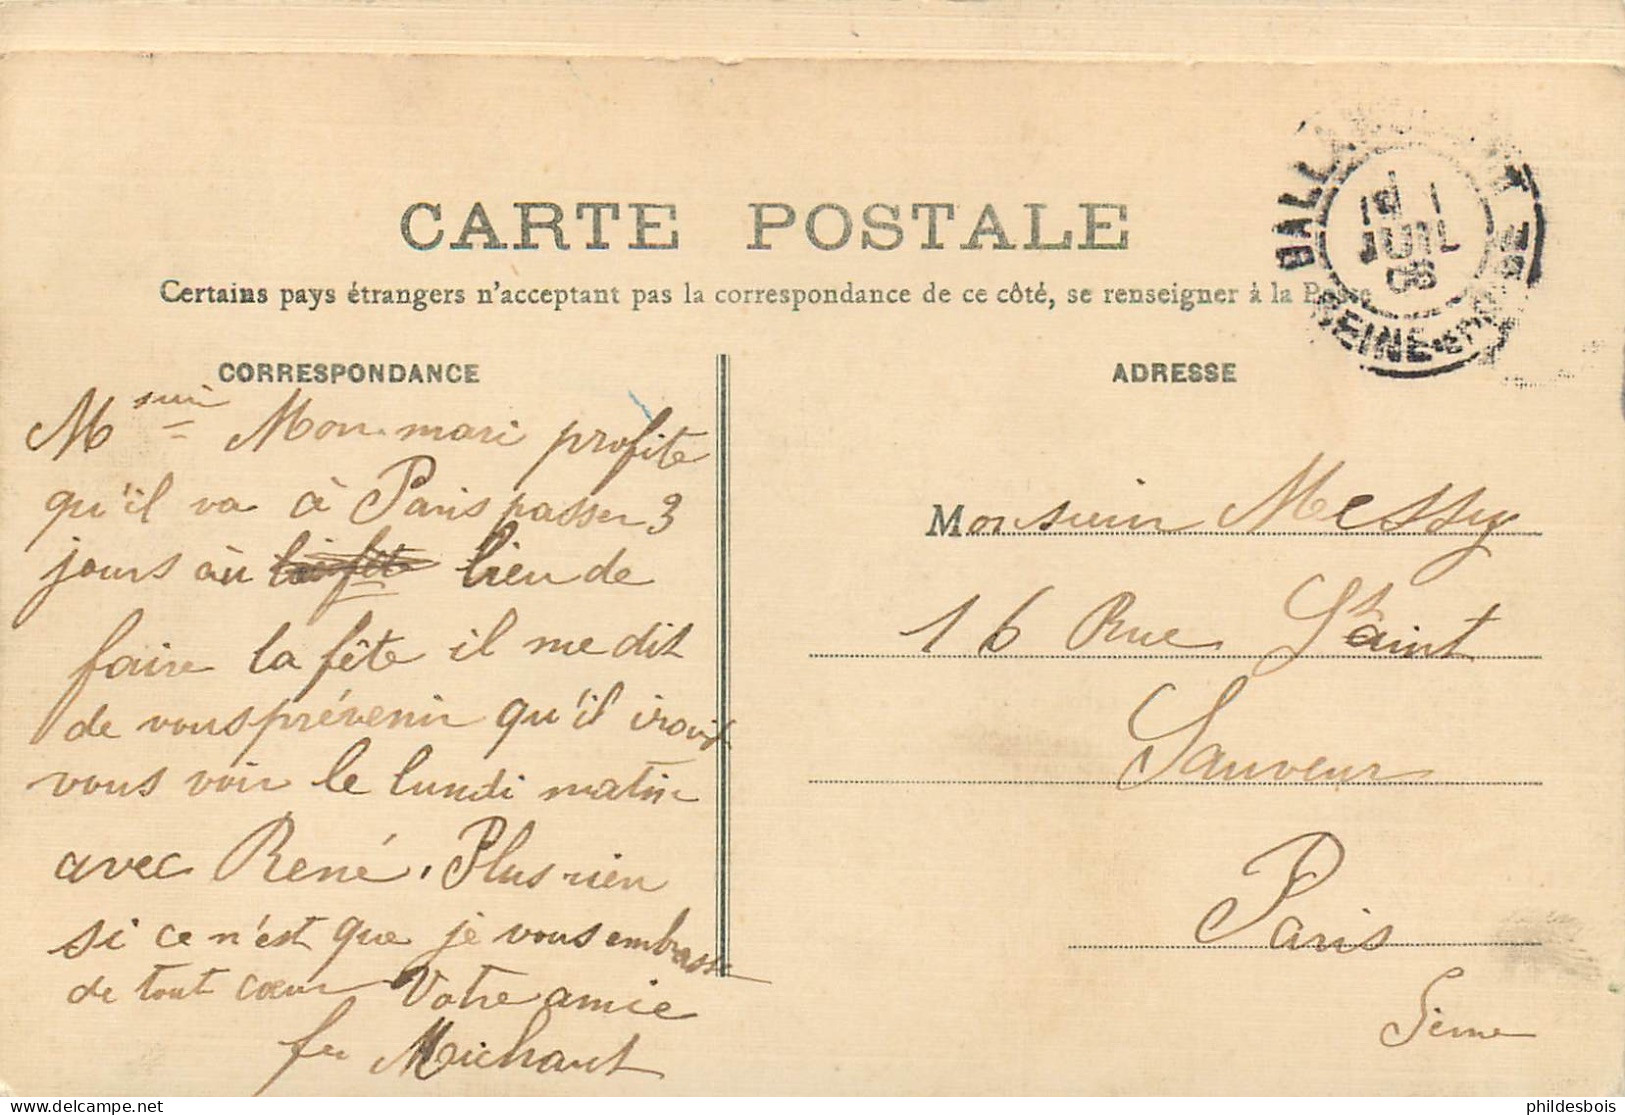 CARTE POSTALE
Certains pays étrangers n'acceptant pas la correspondance de ce côté, se renseigner à la Poste
CORRESPONDANCE
ADRESSE
JUIL
SEINE
Mon mari profite
qu'il va à Paris passer 3
jours au lieu de
faire la fête il me dit
de vous prévenir qu'il irait
vous voir le lundi matin
avec René. Plus rien
si ce n'est que je vous embrasse
de tout cœur Votre amie
Michaut
Monsieur Messy
16 Rue Saint
Sauveur
Paris
Seine
phildesbois